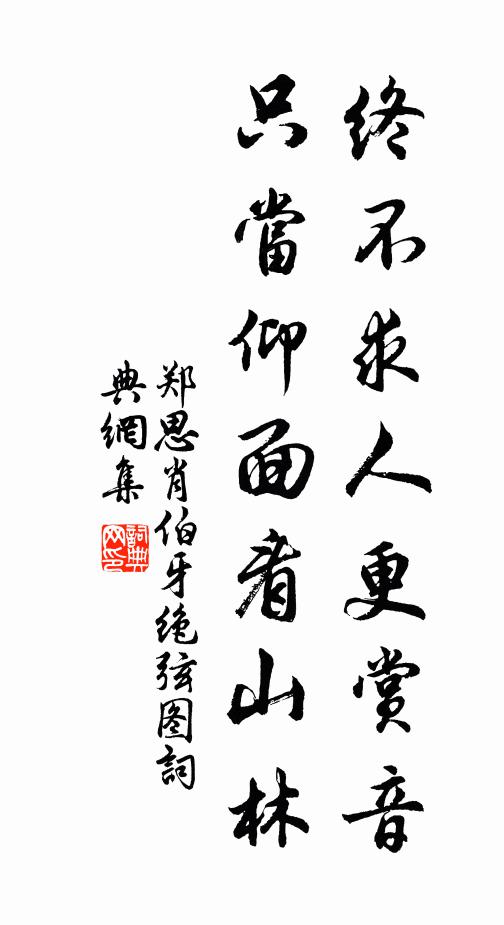 终不求人更赏音
只當仰面看山林
郑思肖伯牙绝弦图詞
典網集
詞典
网印